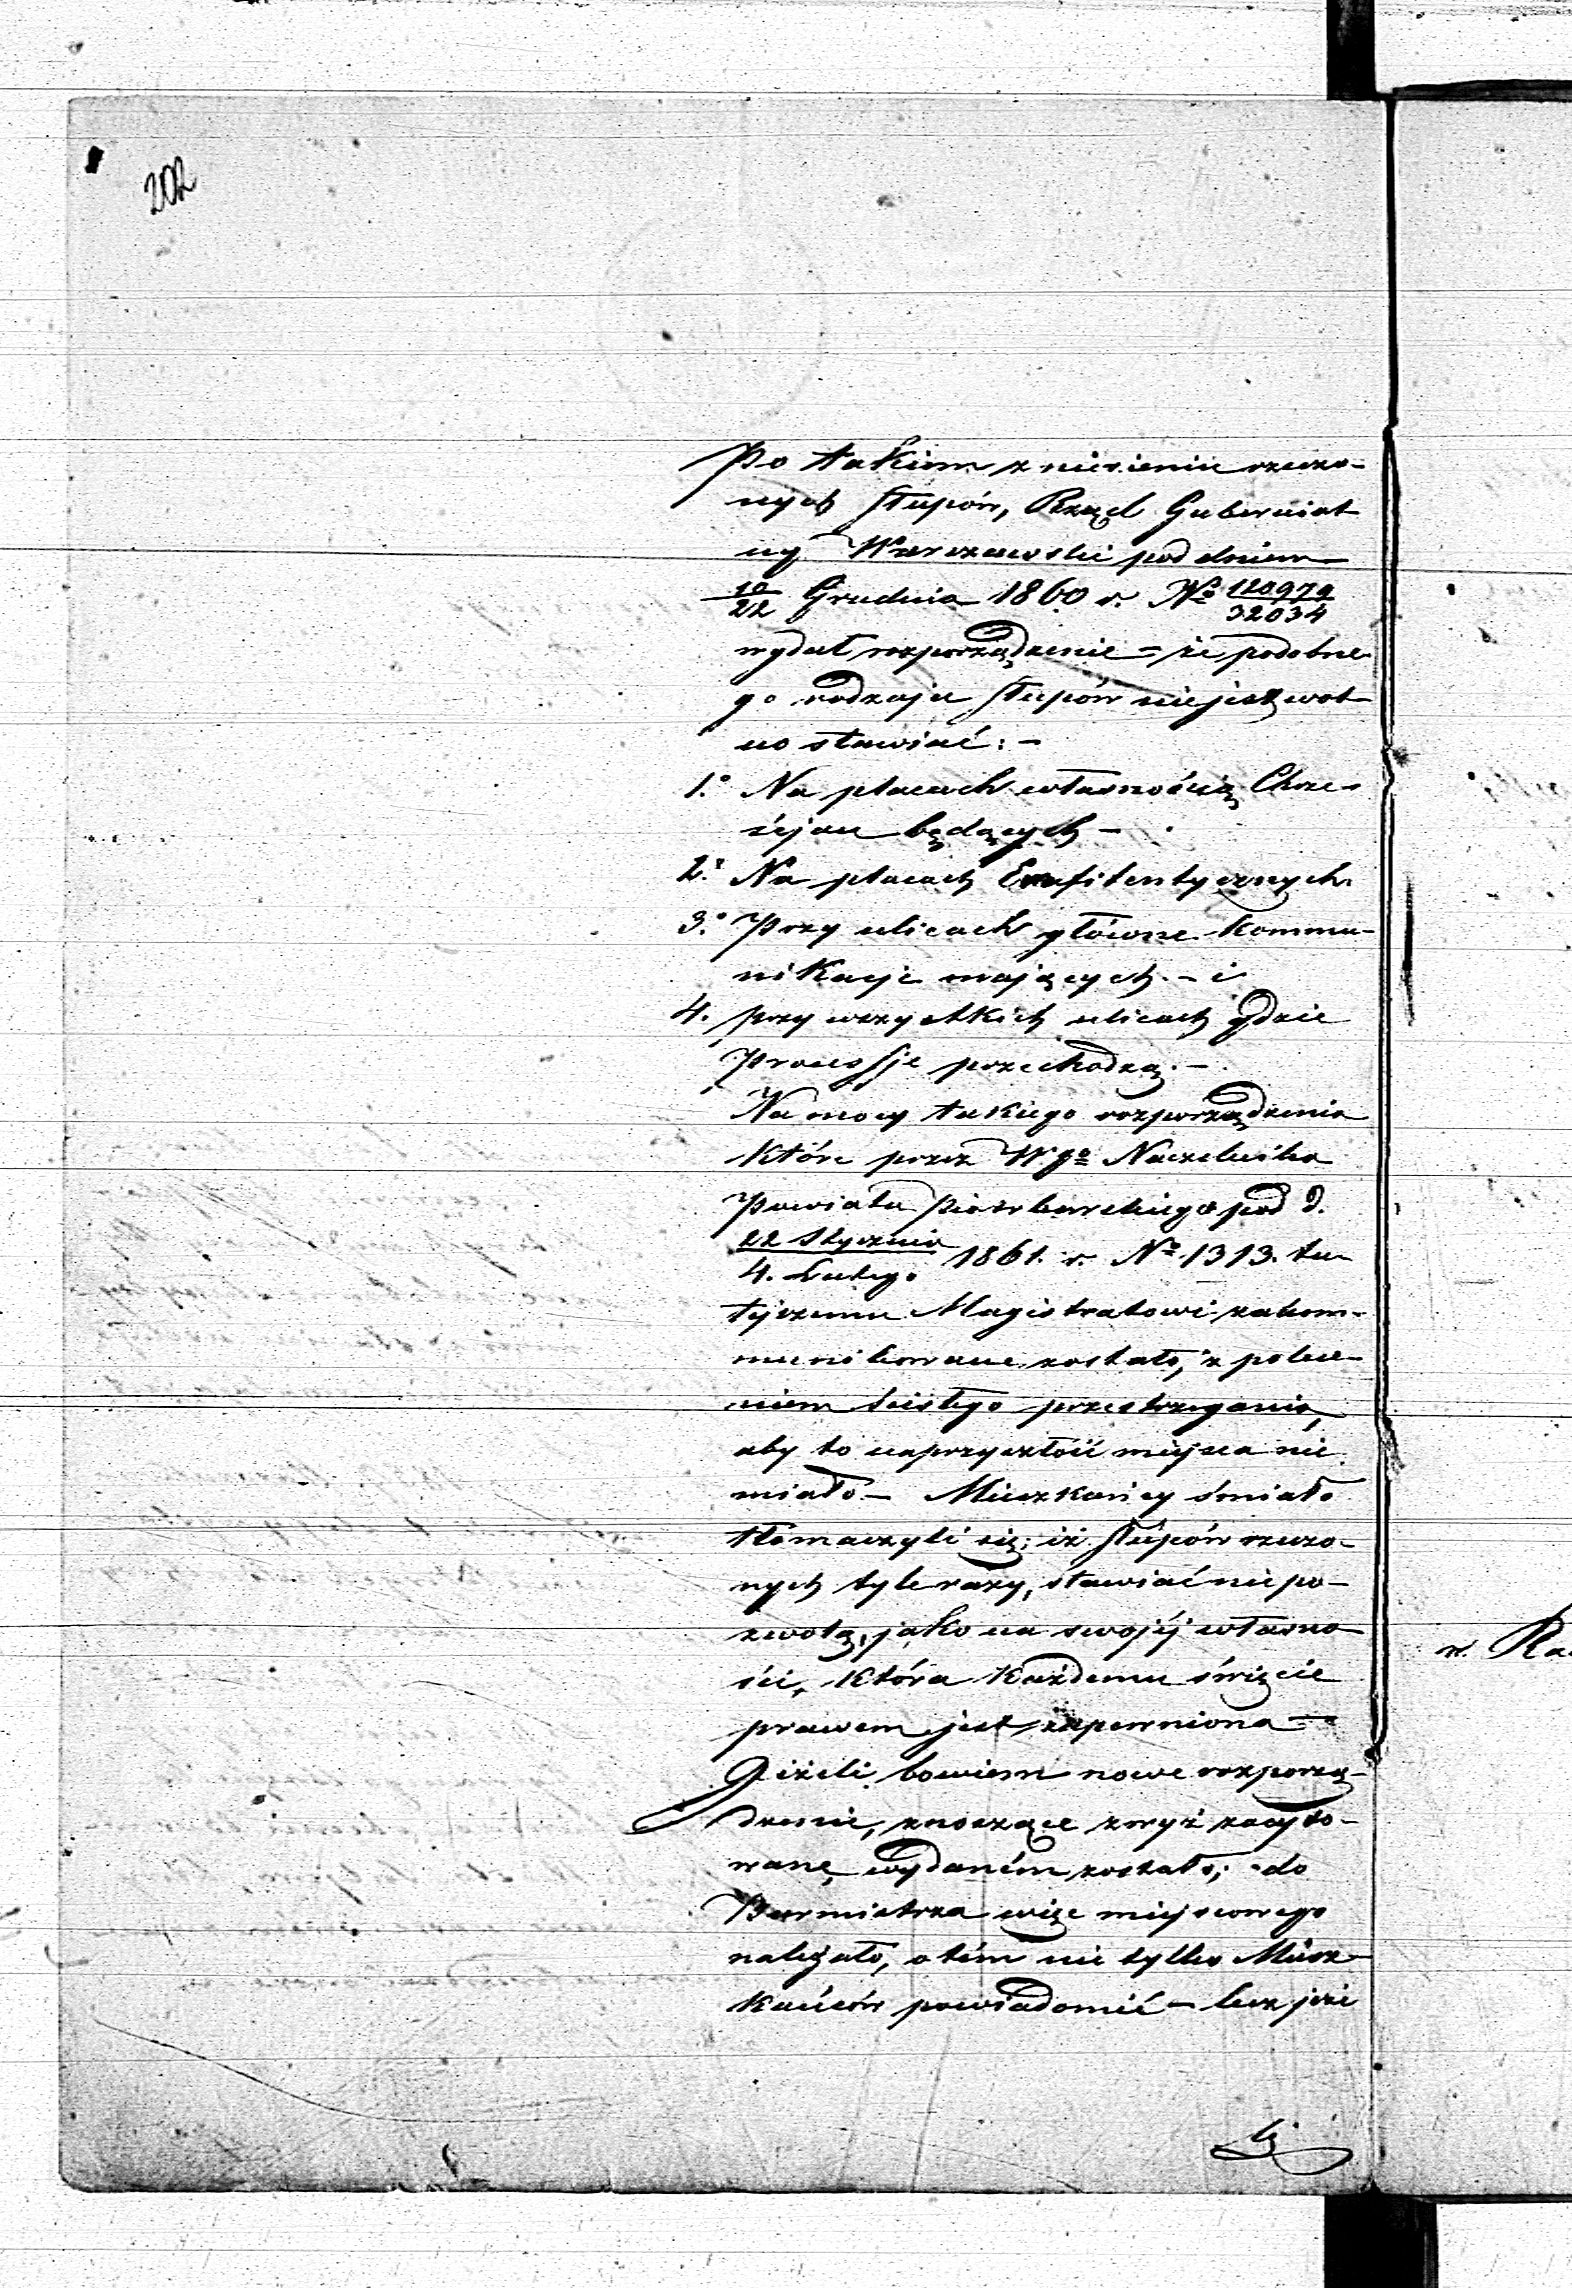 202
Po takiem zniesieniu rzeczo-
nych słupów, Rząd Gubernial-
ny Warszawski pod dniem
10/22 Grudnia 1860 r. No 120979/32034
wydał rozporządzenie = że podobne-
go rodzaju słupów nie jest wol-
no stawiać: –
1.o Na placach własnością Chrze-
ścjan będących –
2.o Na placach Emfitentycznych.
3.o Przy ulicach główne kommu-
nikacje mających. – i
4. przy wszystkich ulicach gdzie
Processje przechodzą. –
Na mocy takiego rozporządzenia
które przez Wgo Naczelnika
Powiatu Piotrkowskiego pod d.
22 Stycznia/4. Lutego 1861. r. No 1313. tu-
tejszemu Magistratowi zakom-
munikowane zostało, z polece-
niem ścisłego przestrzegania,
aby to naprzyszłość miejsca nie
miało – Mieszkańcy śmiało
tłomaczyli się; iż słupów rzeczo-
nych tyle razy, stawiać nie po-
zwolą, jako na swojéj własno-
ści, która każdemu święcie
prawem jest zapewniona =
Jeżeli bowiem nowe rozporzą-
dzenie, znoszące zwyż zacyto-
wane, wydaném zostało; do
Burmistrza więc miejscowego
należało, o tém nie tylko Miesz-
kańców powiadomić – lecz jeże
w. Ra